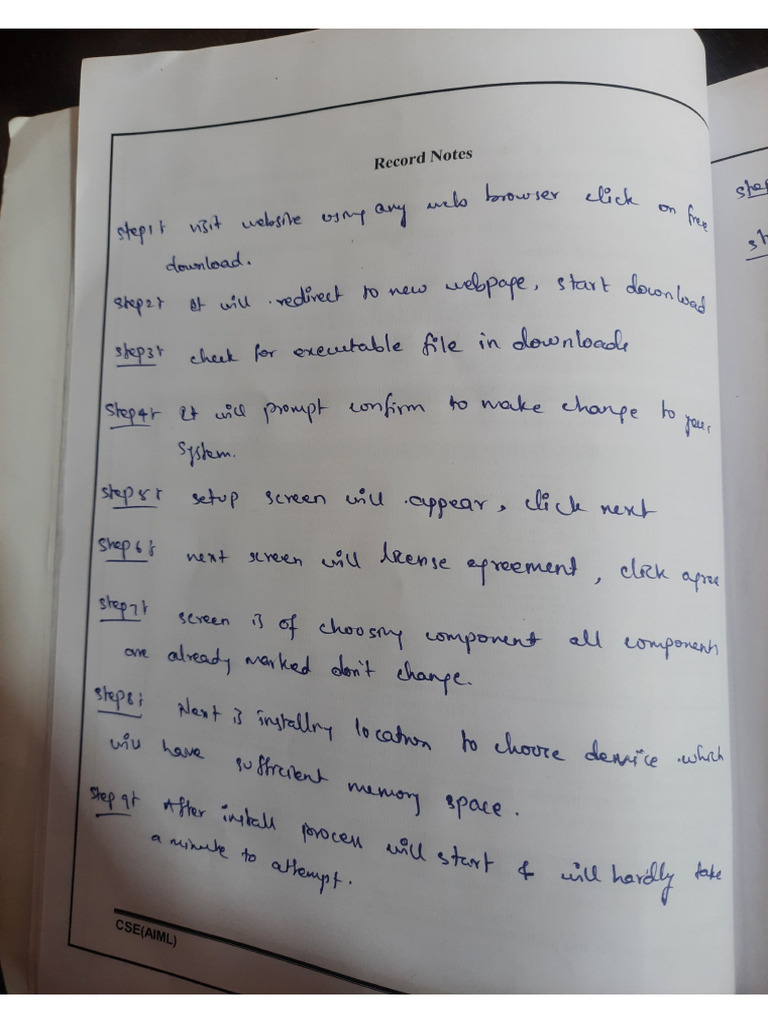 Record Notes
Step1: visit website using any web browser click on free
download.
Step2: It will redirect to new webpage, start download
Step3: check for executable file in downloads
Step4: It will prompt confirm to make change to your
System.
Step5: setup screen will appear, click next
Step6: next screen will license agreement, click agree
Step7: screen is of choosing component all components
are already marked don't change.
Step8: Next is installing location to choose which
will have sufficient memory space.
Step 9: After install process will start & will hardly take
a minute to attempt.
CSE(AIML)